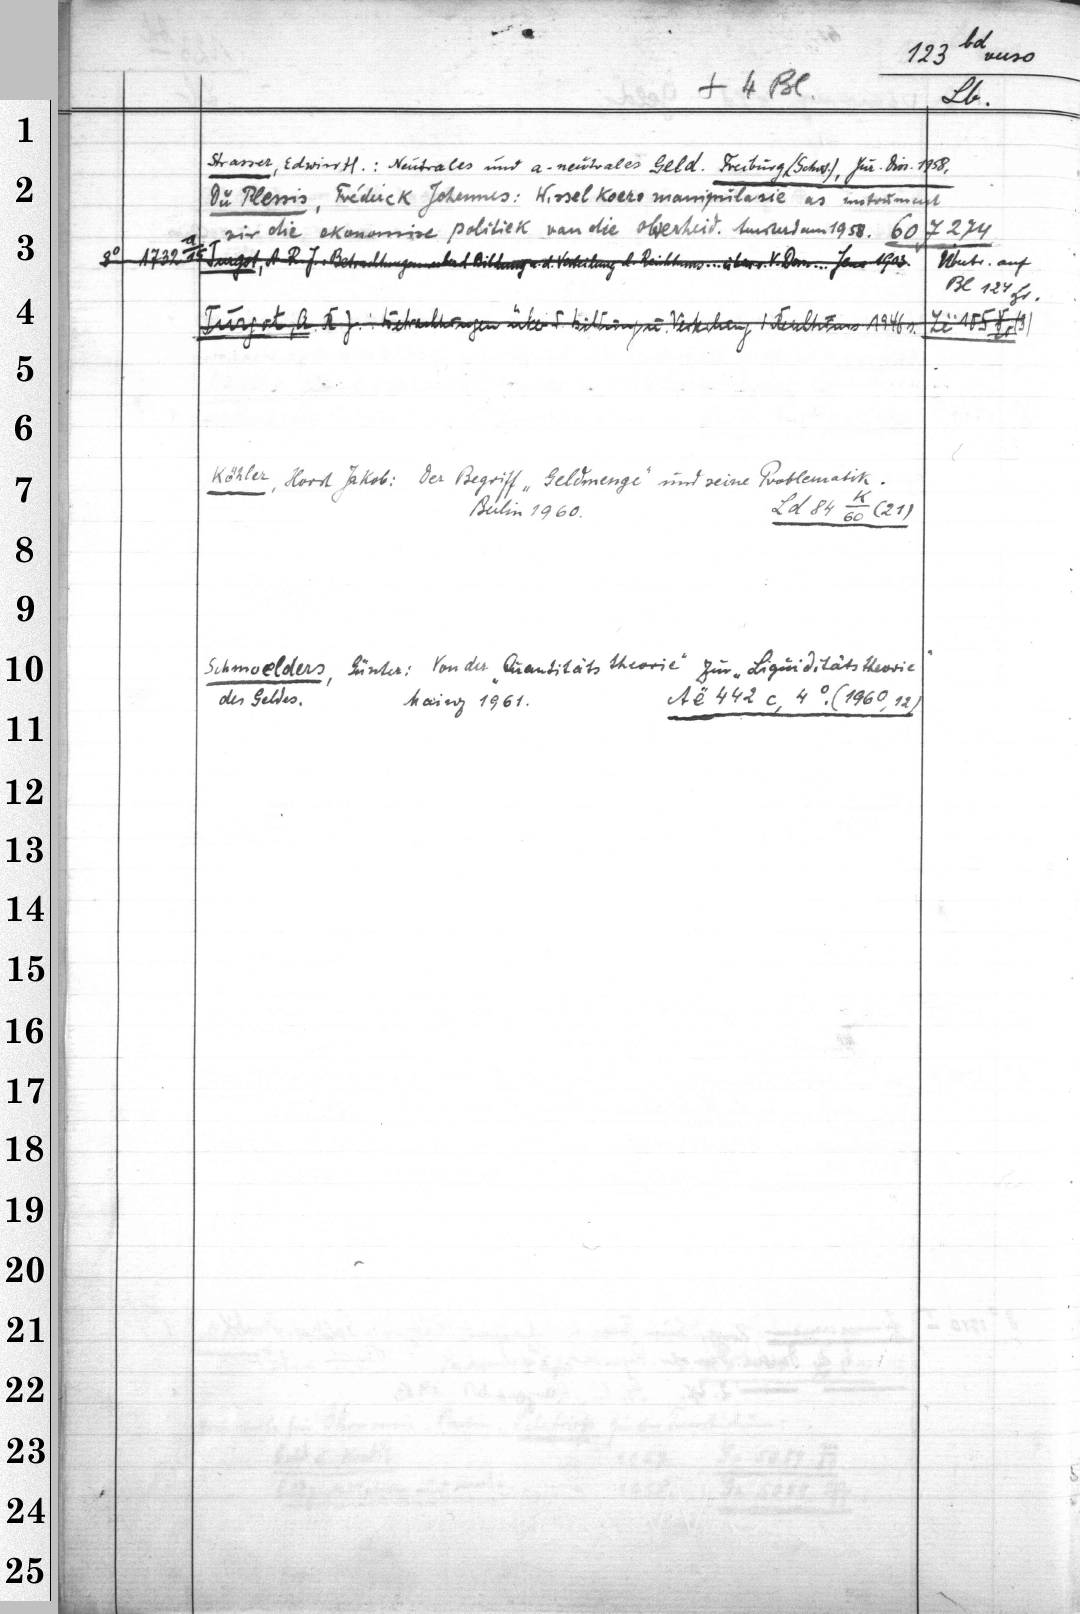 123 bd verso
+ 4 Bl.
Lb.
1
Strasser, Edwin H.: Neutrales und a-neutrales Geld. Freiburg (Schw.), Jur. Diss. 1958.
2
Du Plessis, Fréderick Johennes: Wisselkoersmanipulasie as instrument
vir die ekonomise politiek van die owerheid. Amsterdam 1958. 60 7 274
3
8° 1732 a/15 Turgot, A. R. J.: Betrachtungen über d. Bildung u. d. Verteilung d. Reichtums... Jena 1903.
auf
Bl 124
4
Turgot, A. R. J.: Betrachtungen über d. Bildung u. Verteilung d. Reichtums 1946
5
6
7
Köhler, Horst Jakob: Der Begriff „Geldmenge" und seine Problematik.
Berlin 1960. Ld 84 K/60 (21)
8
9
10
Schmoelders, Günter: Von der „Quantitätstheorie" zur „Liquiditätstheorie"
des Geldes. Mainz 1961. Aë 442 c, 4°. (1960, 12)
11
12
13
14
15
16
17
18
19
20
21
22
23
24
25